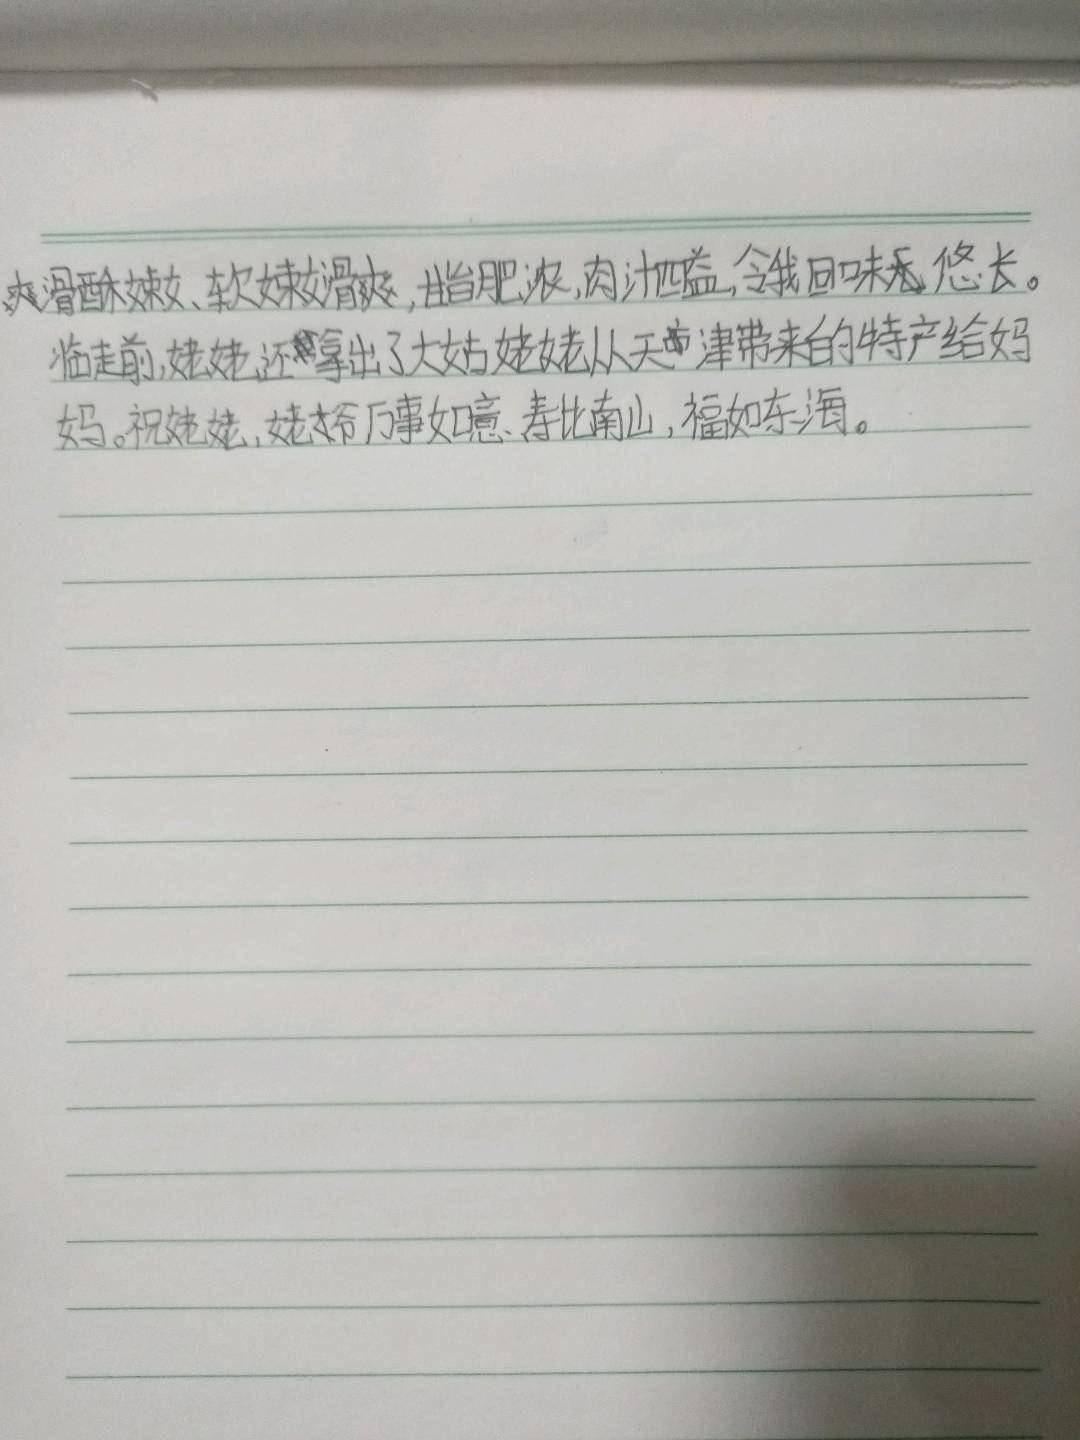 爽滑酥嫩、软嫩滑爽,脂肥浓,肉汁四溢,令我回味悠长。
临走前,姥姥还拿出了大姑姥姥从天津带来的特产给妈
妈。祝姥姥,姥爷万事如意、寿比南山,福如东海。